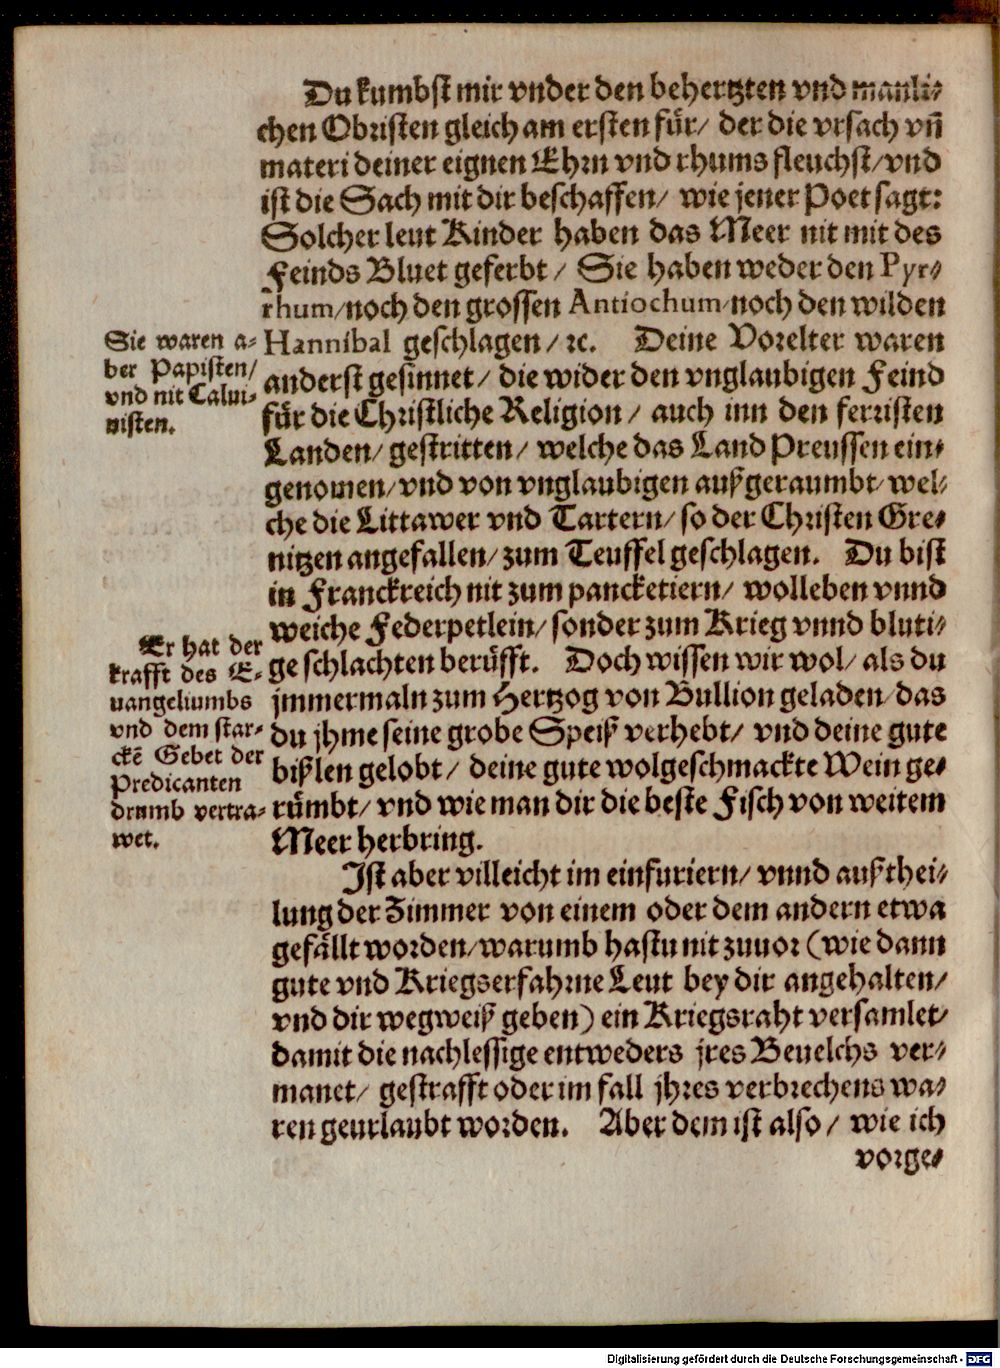 Du kumbst mir vnder den behertzten vnd manli⸗
chen Obristen gleich am ersten für/ der die vrsach vñ
materi deiner eignen Ehrn vnd rhums fleuchst/ vnd
ist die Sach mit dir beschaffen/ wie jener Poet sagt:
Solcher leut Kinder haben das Meer nit mit des
Feinds Bluet geferbt/ Sie haben weder den Pyr⸗
rhum/ noch den grossen Antiochum/ noch den wilden
Hannibal geschlagen/ ꝛc. Deine Vorelter waren
anderst gesinnet/ die wider den vnglaubigen Feind
für die Christliche Religion/ auch inn den ferristen
Landen/ gestritten/ welche das Land Preussen ein⸗
genomen/ vnd von vnglaubigen außgeraumbt/ wel⸗
che die Littawer vnd Tartern/ so der Christen Gre⸗
nitzen angefallen/ zum Teuffel geschlagen. Du bist
in Franckreich nit zum pancketiern/ wolleben vnnd
weiche Federpetlein/ sonder zum Krieg vnnd bluti⸗
ge schlachten berüfft. Doch wissen wir wol/ als du
jmmermaln zum Hertzog von Bullion geladen/ das
du jhme seine grobe Speiß verhebt/ vnd deine gute
bißlen gelobt/ deine gute wolgeschmackte Wein ge⸗
rümbt/ vnd wie man dir die beste Fisch von weitem
Meer herbring.
Sie waren a⸗
ber Papisten/
vnd nit Calui⸗
nisten.
Er hat der
krafft des E⸗
uangeliumbs
vnd dem star⸗
ckẽ Gebet der
Predicanten
drumb vertra⸗
wet.
Ist aber villeicht im einfuriern/ vnnd außthei⸗
lung der Zimmer von einem oder dem andern etwa
gefällt worden/ warumb hastu nit zuuor (wie dann
gute vnd Kriegserfahrne Leut bey dir angehalten/
vnd dir wegweiß geben) ein Kriegsraht versamlet/
damit die nachlessige entweders jres Beuelchs ver⸗
manet/ gestrafft oder im fall jhres verbrechens wa⸗
ren geurlaubt worden. Aber dem ist also/ wie ich
vorge⸗
Digitalisierung gefördert durch die Deutsche Forschungsgemeinschaft - DFG